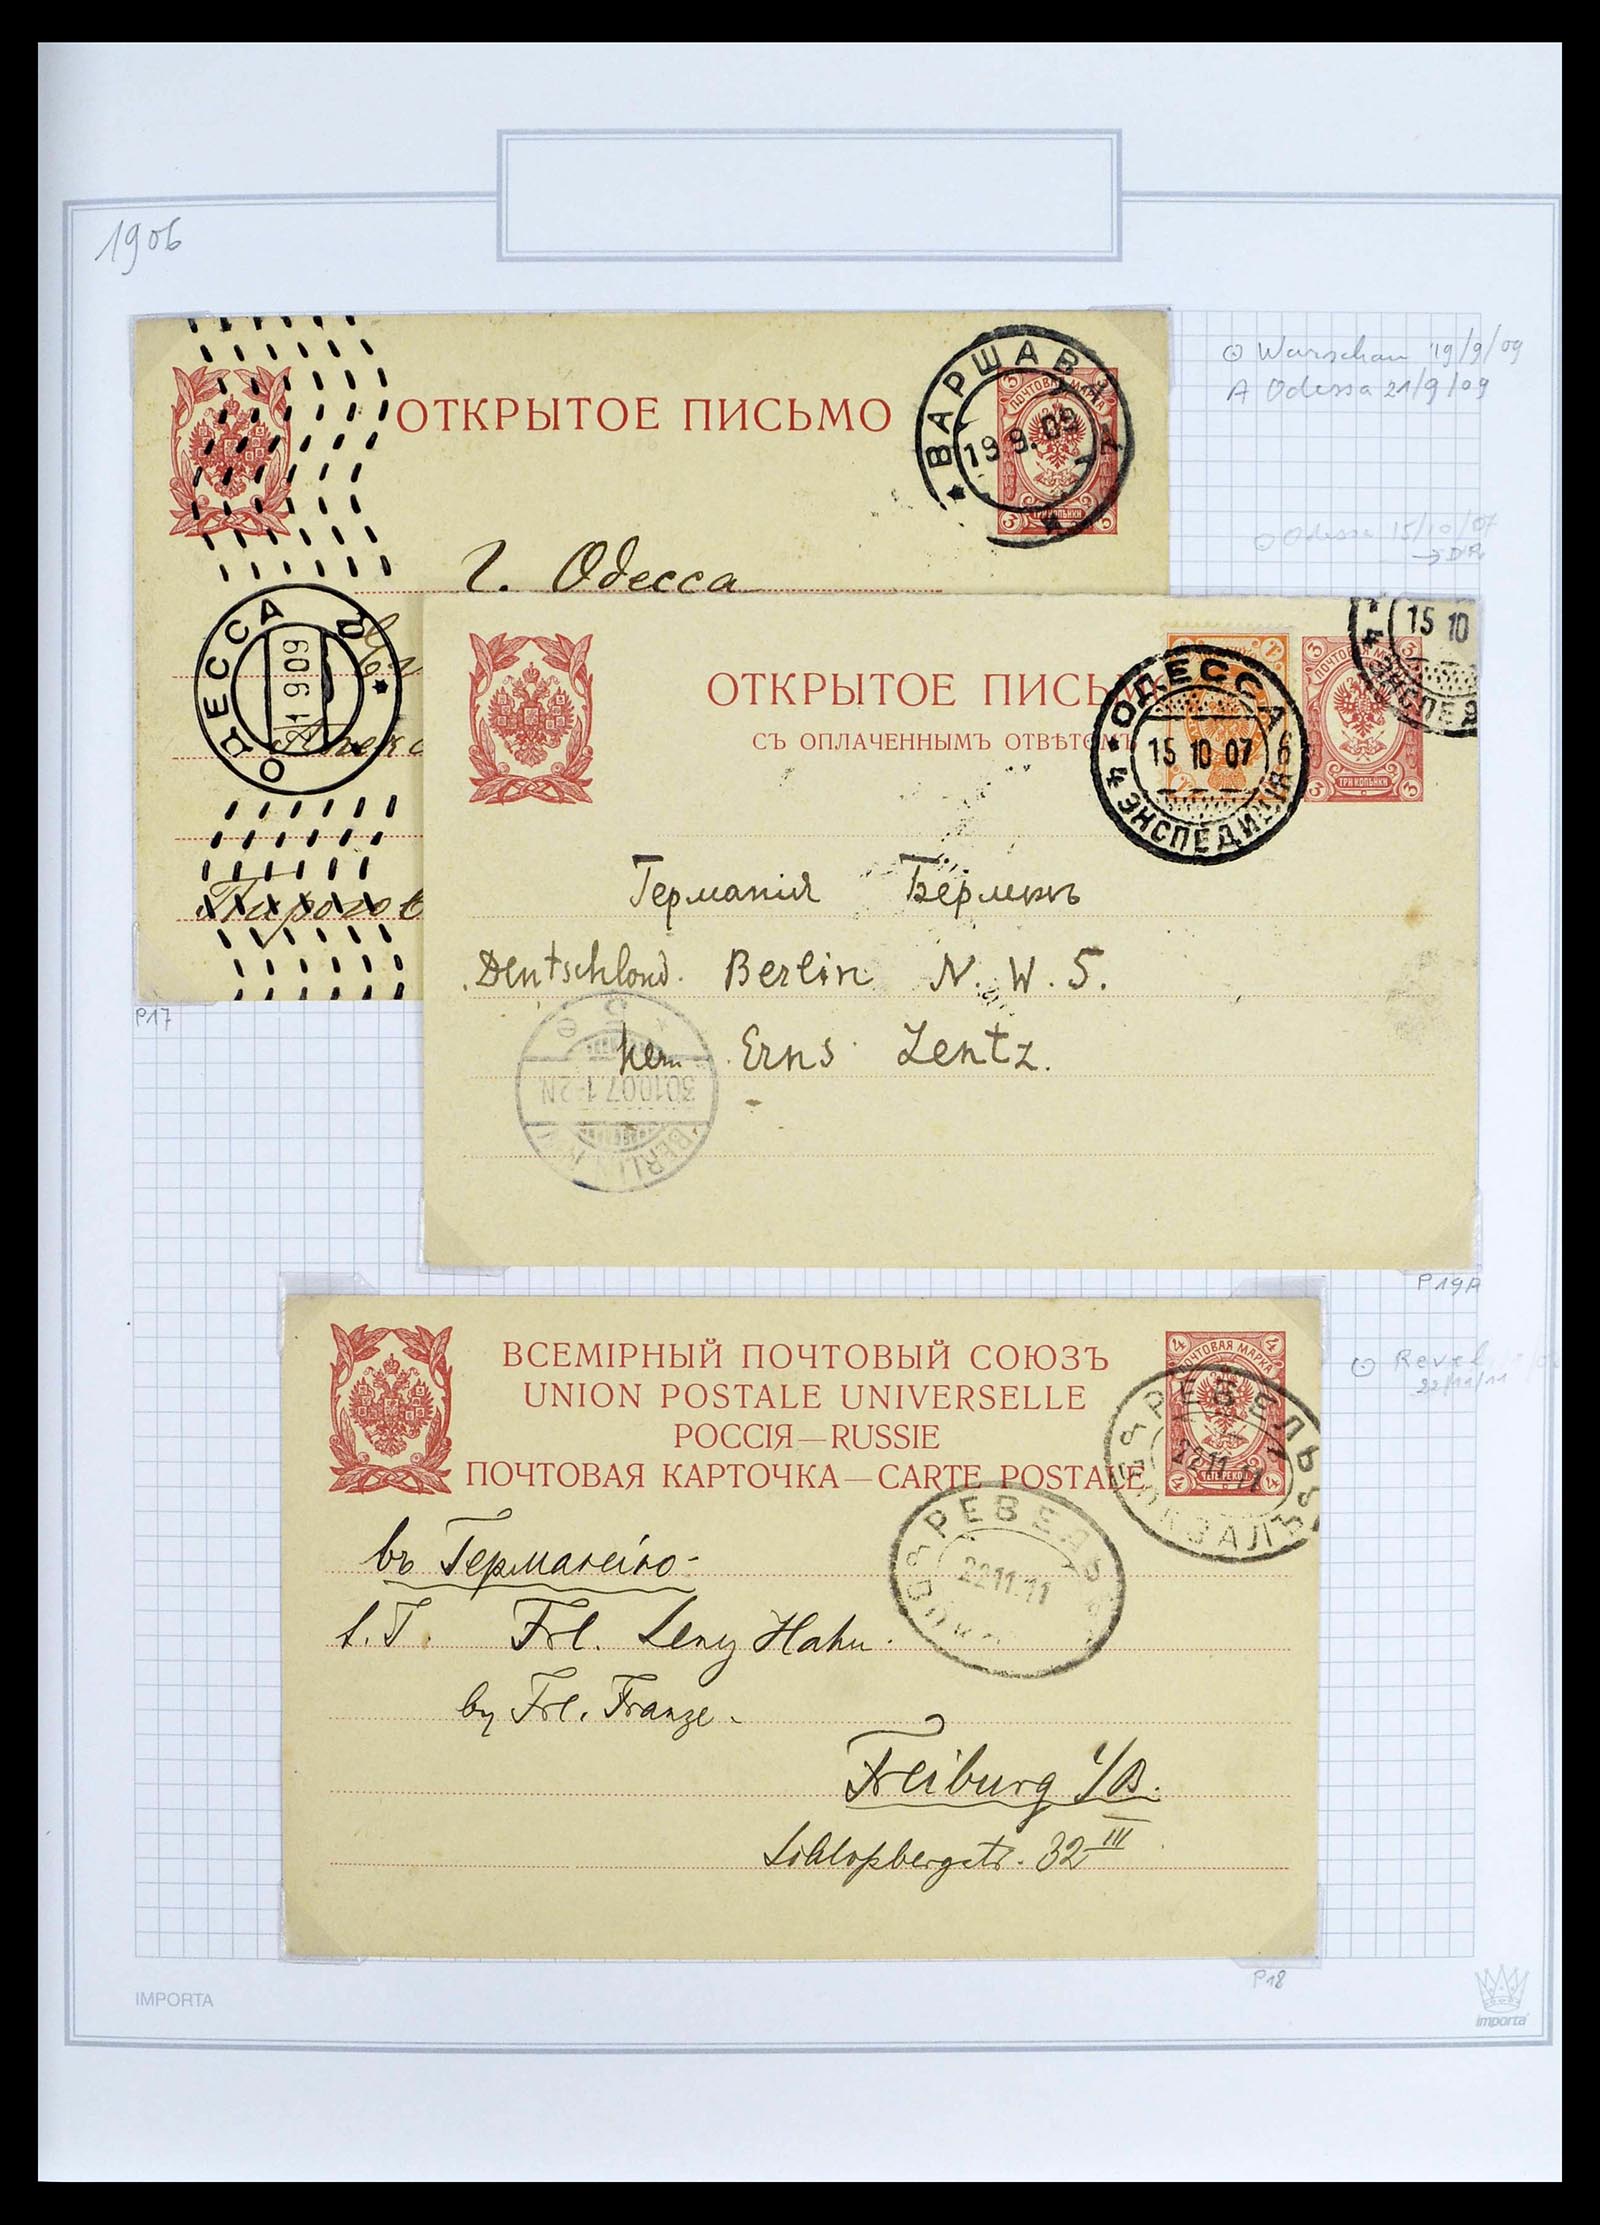 1906
ОТКРЫТОЕ ПИСЬМО
ВАРШАВА
19 9. 09
ПОЧТОВАЯ МАРКА
ТРИ КОПѢЙКИ
Warschau 19/9/09
A Odessa 21/9/09
Odessa 15/10/07
г. Одесса
ОДЕССА
1 9 09
Пирогов
P17
ОТКРЫТОЕ ПИСЬМО
СЪ ОПЛАЧЕННЫМЪ ОТВѢТОМЪ
ОДЕССА
15 10 07
4 ЭКСПЕДИЦІЯ
15 10
ТРИ КОПѢЙКИ
Германія Берлинъ
Deutschland. Berlin N. W. 5.
Herrn Erns Lentz.
30.10.07.1-2N
BERLIN
P19A
ВСЕМІРНЫЙ ПОЧТОВЫЙ СОЮЗЪ
UNION POSTALE UNIVERSELLE
РОССІЯ—RUSSIE
ПОЧТОВАЯ КАРТОЧКА—CARTE POSTALE
ПОЧТОВАЯ МАРКА
4
РЕВЕЛЬ
22 11. 11
ВОКЗАЛЪ
РЕВЕЛЬ
22 11. 11
Reval
22/11/11
въ Германію
Frl. Leny Hahn.
by Frl. Franze.
Freiburg i/B.
32 III
P18
IMPORTA
importa